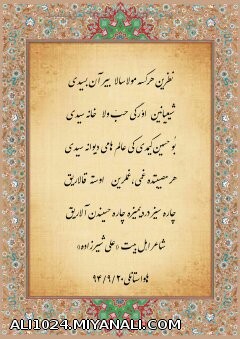 نظرین هر کسه مولا سالا بیر آن بسدی
شیعیانین اورگی حبّ ولا خانه سیدی
بو حسین کیمدی کی عالم هامی دیوانه سیدی
هر مصیبتده غمی، غملرین اوسته قالاریق
چاره سیز دردیمیزه چاره حسیندن آلاریق
شاعر اهل بیت «علی شیرزاده»
۹۴/۹/۲۰
ALI1024.MIYANALI.COM